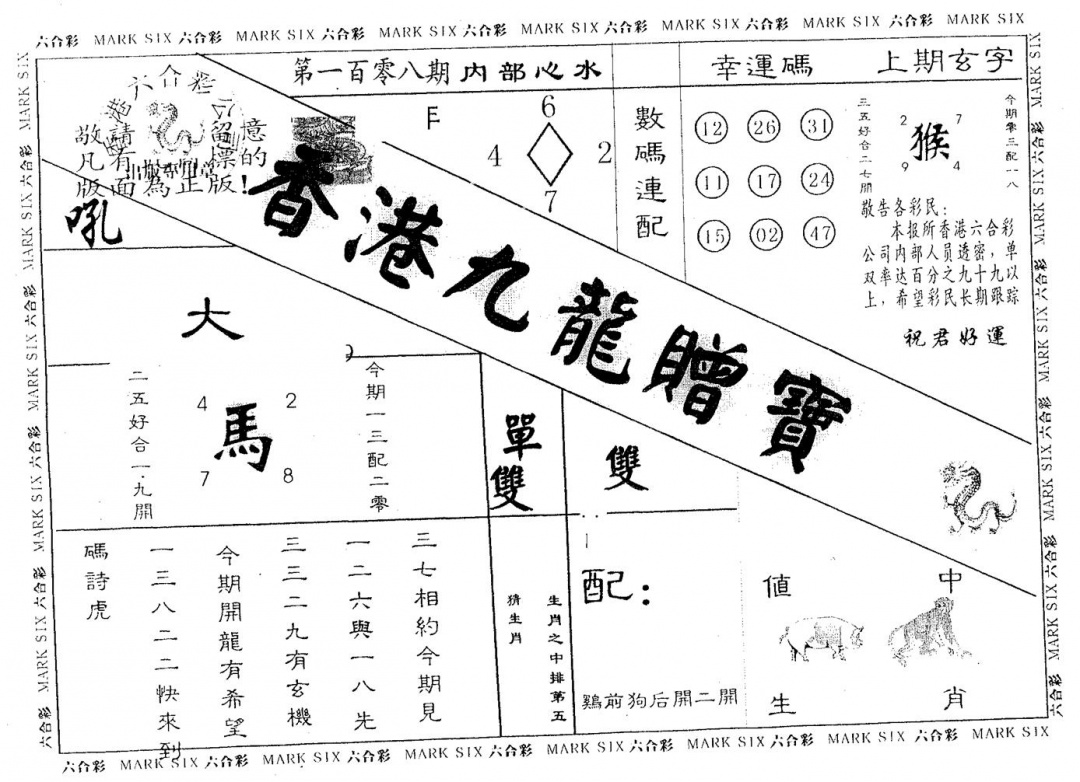 六合彩 MARK SIX 六合彩 MARK SIX 六合彩 MARK SIX 六合彩 MARK SIX 六合彩 MARK SIX 六合彩 MARK SIX 六合彩 MARK SIX
第一百零八期 内部心水
幸運碼
上期玄字
六合彩
敬請留意
凡有標的
版面為正版!
吼
E
6
4 2
7
數碼連配
12 26 31
11 17 24
15 02 47
三五好合二七開
2 7
猴
9 4
今期零三配一八
敬告各彩民:
本报所香港六合彩
公司内部人员透密,单
双率达百分之九十九以
上,希望彩民长期跟踪
祝君好運
香港九龍贈寶
大
二五好合一.九開
4 2
馬
7 8
今期一三配二零
單雙
雙
三七相約今期見
一二六與一八先
三三二九有玄機
今期開龍有希望
一三八二二快來到
碼詩虎
生肖之中排第五
猜生肖
配:
鷄前狗后開二開
值 中
生 肖
六合彩 MARK SIX 六合彩 MARK SIX 六合彩 MARK SIX 六合彩 MARK SIX 六合彩 MARK SIX 六合彩 MARK SIX 六合彩 MARK SIX